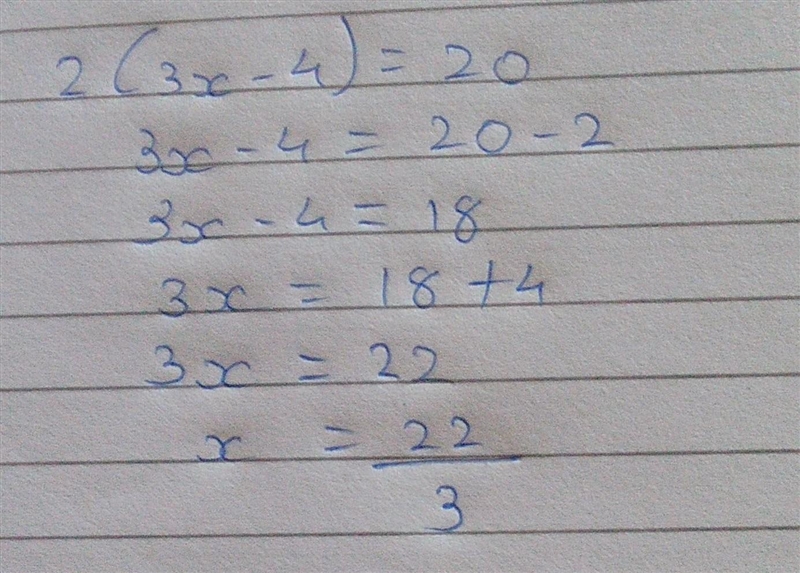 2(3x-4) = 20
3x - 4 = 20 - 2
3x - 4 = 18
3x = 18 + 4
3x = 22
x = 22/3